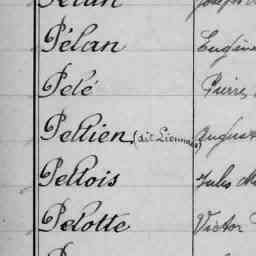 Pélan Eugène
Pelé Pierre
Pellien (dit Lionnais) August
Pellois Jules
Pelotte Victor